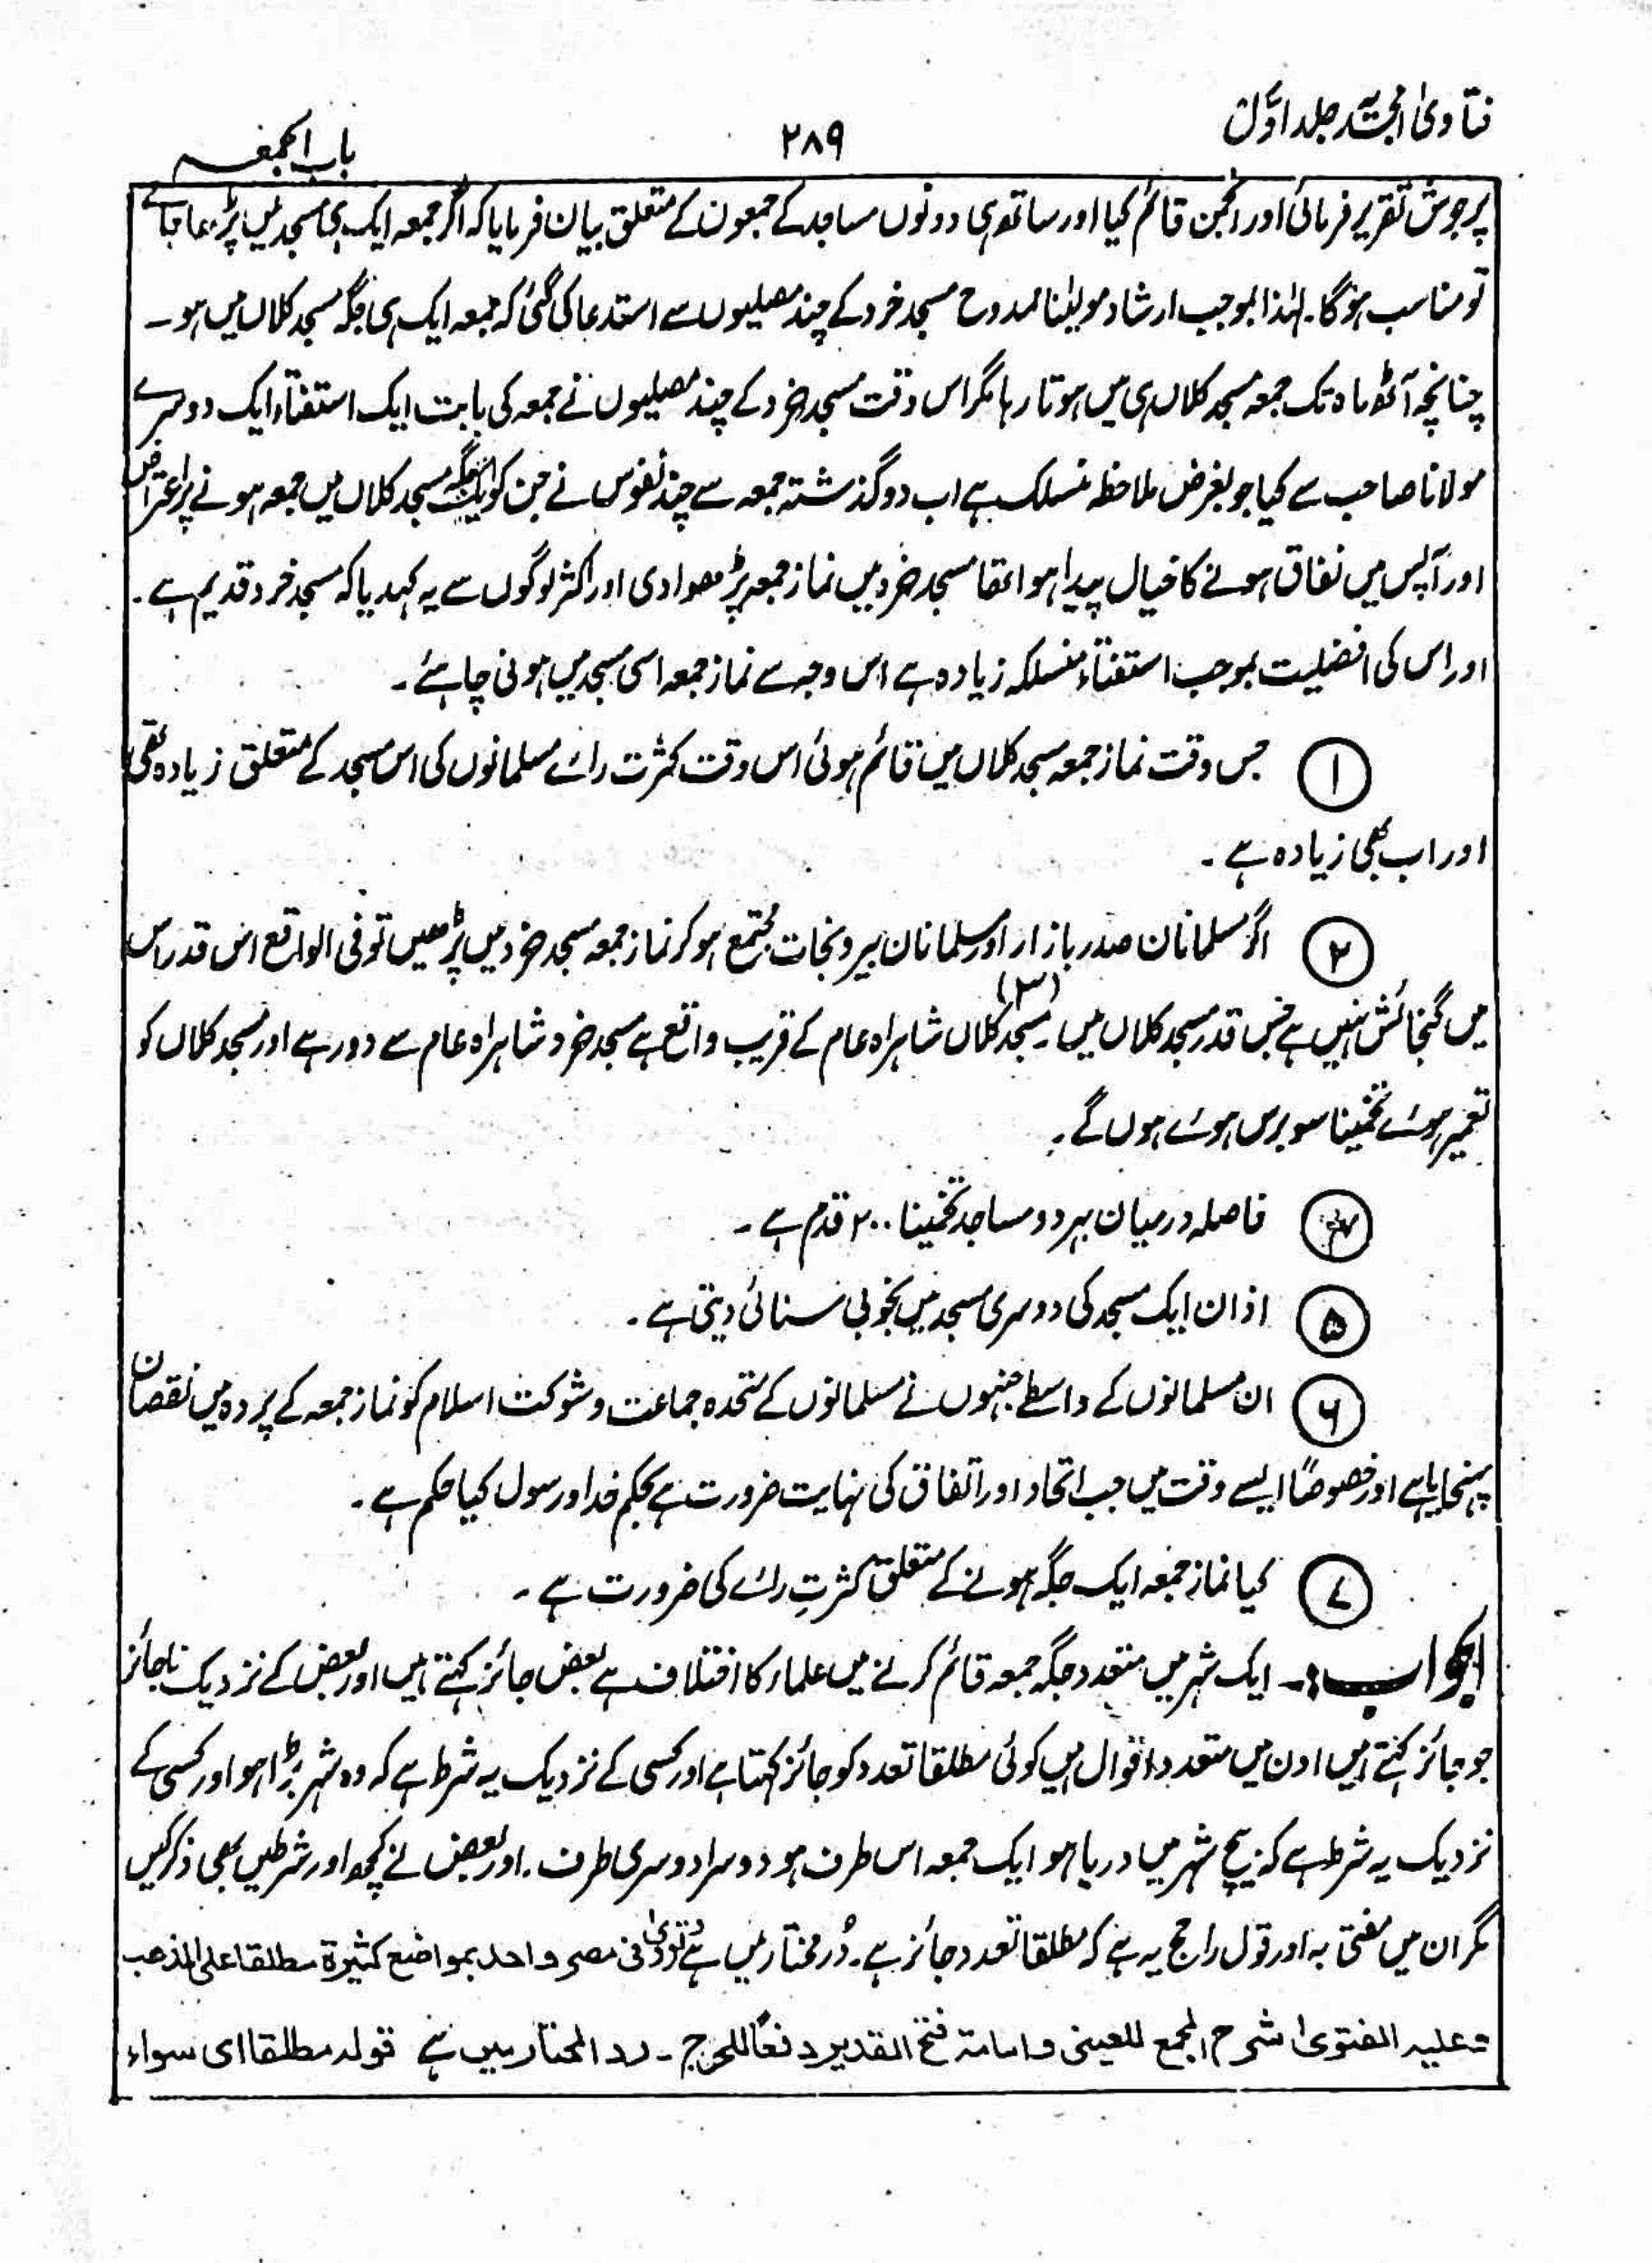 فتاویٰ امجدیہ جلد اوّل
۲۸۹
باب الجمعہ
پرجوش تقریر فرمائی اور انجمن قائم کیا اور ساتھ ہی دونوں مساجد کے جمعوں کے متعلق بیان فرمایا کہ اگر جمعہ ایک ہی مسجد میں پڑھا جائے
تو مناسب ہوگا۔ لہٰذا بموجب ارشاد مولیٰنا ممدوح مسجد خرد کے چند مصلیوں سے استدعا کی گئی کہ جمعہ ایک ہی جگہ مسجد کلاں میں ہو۔
چنانچہ آٹھ ماہ تک جمعہ مسجد کلاں ہی میں ہوتا رہا مگر اس وقت مسجد خرد کے چند مصلیوں نے جمعہ کی بابت ایک استفتاء ایک دوسرے
مولانا صاحب سے کیا جو بغرض ملاحظہ منسلک ہے اب دو گذشتہ جمعہ سے چند نفوس نے جن کو ایک جگہ مسجد کلاں میں جمعہ ہونے پر اعتراض
اور آپس میں نفاق ہونے کا خیال پیدا ہوا تھا مسجد خرد میں نماز جمعہ پڑھوا دی اور اکثر لوگوں سے یہ کہدیا کہ مسجد خرد قدیم ہے۔
اور اس کی افضلیت بموجب استفتاء منسلکہ زیادہ ہے اس وجہ سے نماز جمعہ اسی مسجد میں ہونی چاہئے۔
۱ جس وقت نماز جمعہ مسجد کلاں میں قائم ہوئی اس وقت کثرت رائے مسلمانوں کی اس مسجد کے متعلق زیادہ تھی
اور اب بھی زیادہ ہے۔
۲ اگر مسلمانان صدر بازار اور مسلمانان بیرونجات مجتمع ہو کر نماز جمعہ مسجد خرد میں پڑھیں تو فی الواقع اس قدر اس
میں گنجائش نہیں ہے جس قدر مسجد کلاں میں۔ (۳) مسجد کلاں شاہراہ عام کے قریب واقع ہے مسجد خرد شاہراہ عام سے دور ہے اور مسجد کلاں کو
تعمیر ہوئے تخمینا سو برس ہوئے ہوں گے۔
۴ فاصلہ درمیان ہر دو مساجد تخمینا ۲۰۰ قدم ہے۔
۵ اذان ایک مسجد کی دوسری مسجد میں بخوبی سنائی دیتی ہے۔
۶ ان مسلمانوں کے واسطے جنہوں نے مسلمانوں کے متحدہ جماعت و شوکت اسلام کو نماز جمعہ کے پردہ میں نقصان
پہنچایا ہے اور خصوصًا ایسے وقت میں جب اتحاد اور اتفاق کی نہایت ضرورت ہے بحکم خدا و رسول کیا حکم ہے۔
۷ کیا نماز جمعہ ایک جگہ ہونے کے متعلق کثرتِ رائے کی ضرورت ہے۔
الجواب:۔ ایک شہر میں متعدد جگہ جمعہ قائم کرنے میں علماء کا اختلاف ہے بعض جائز کہتے ہیں اور بعض کے نزدیک ناجائز
جو جائز کہتے ہیں اون میں متعدد اقوال ہیں کوئی مطلقا تعدد کو جائز کہتا ہے اور کسی کے نزدیک یہ شرط ہے کہ وہ شہر بڑا ہو اور کسی کے
نزدیک یہ شرط ہے کہ بیچ شہر میں دریا ہو ایک جمعہ اس طرف ہو دوسرا دوسری طرف۔ اور بعض نے کچھ اور شرطیں بھی ذکر کیں
مگر ان میں مفتی بہ اور قول راجح یہ ہے کہ مطلقا تعدد جائز ہے۔ دُر مختار میں ہے تؤدیٰ فی مصر واحد بمواضع کثیرة مطلقا علی المذھب
وعلیہ الفتویٰ شرح المجمع للعینی وامامة فتح القدیر دفعًا للحرج۔ رد المحتار میں ہے قولہ مطلقا ای سواء